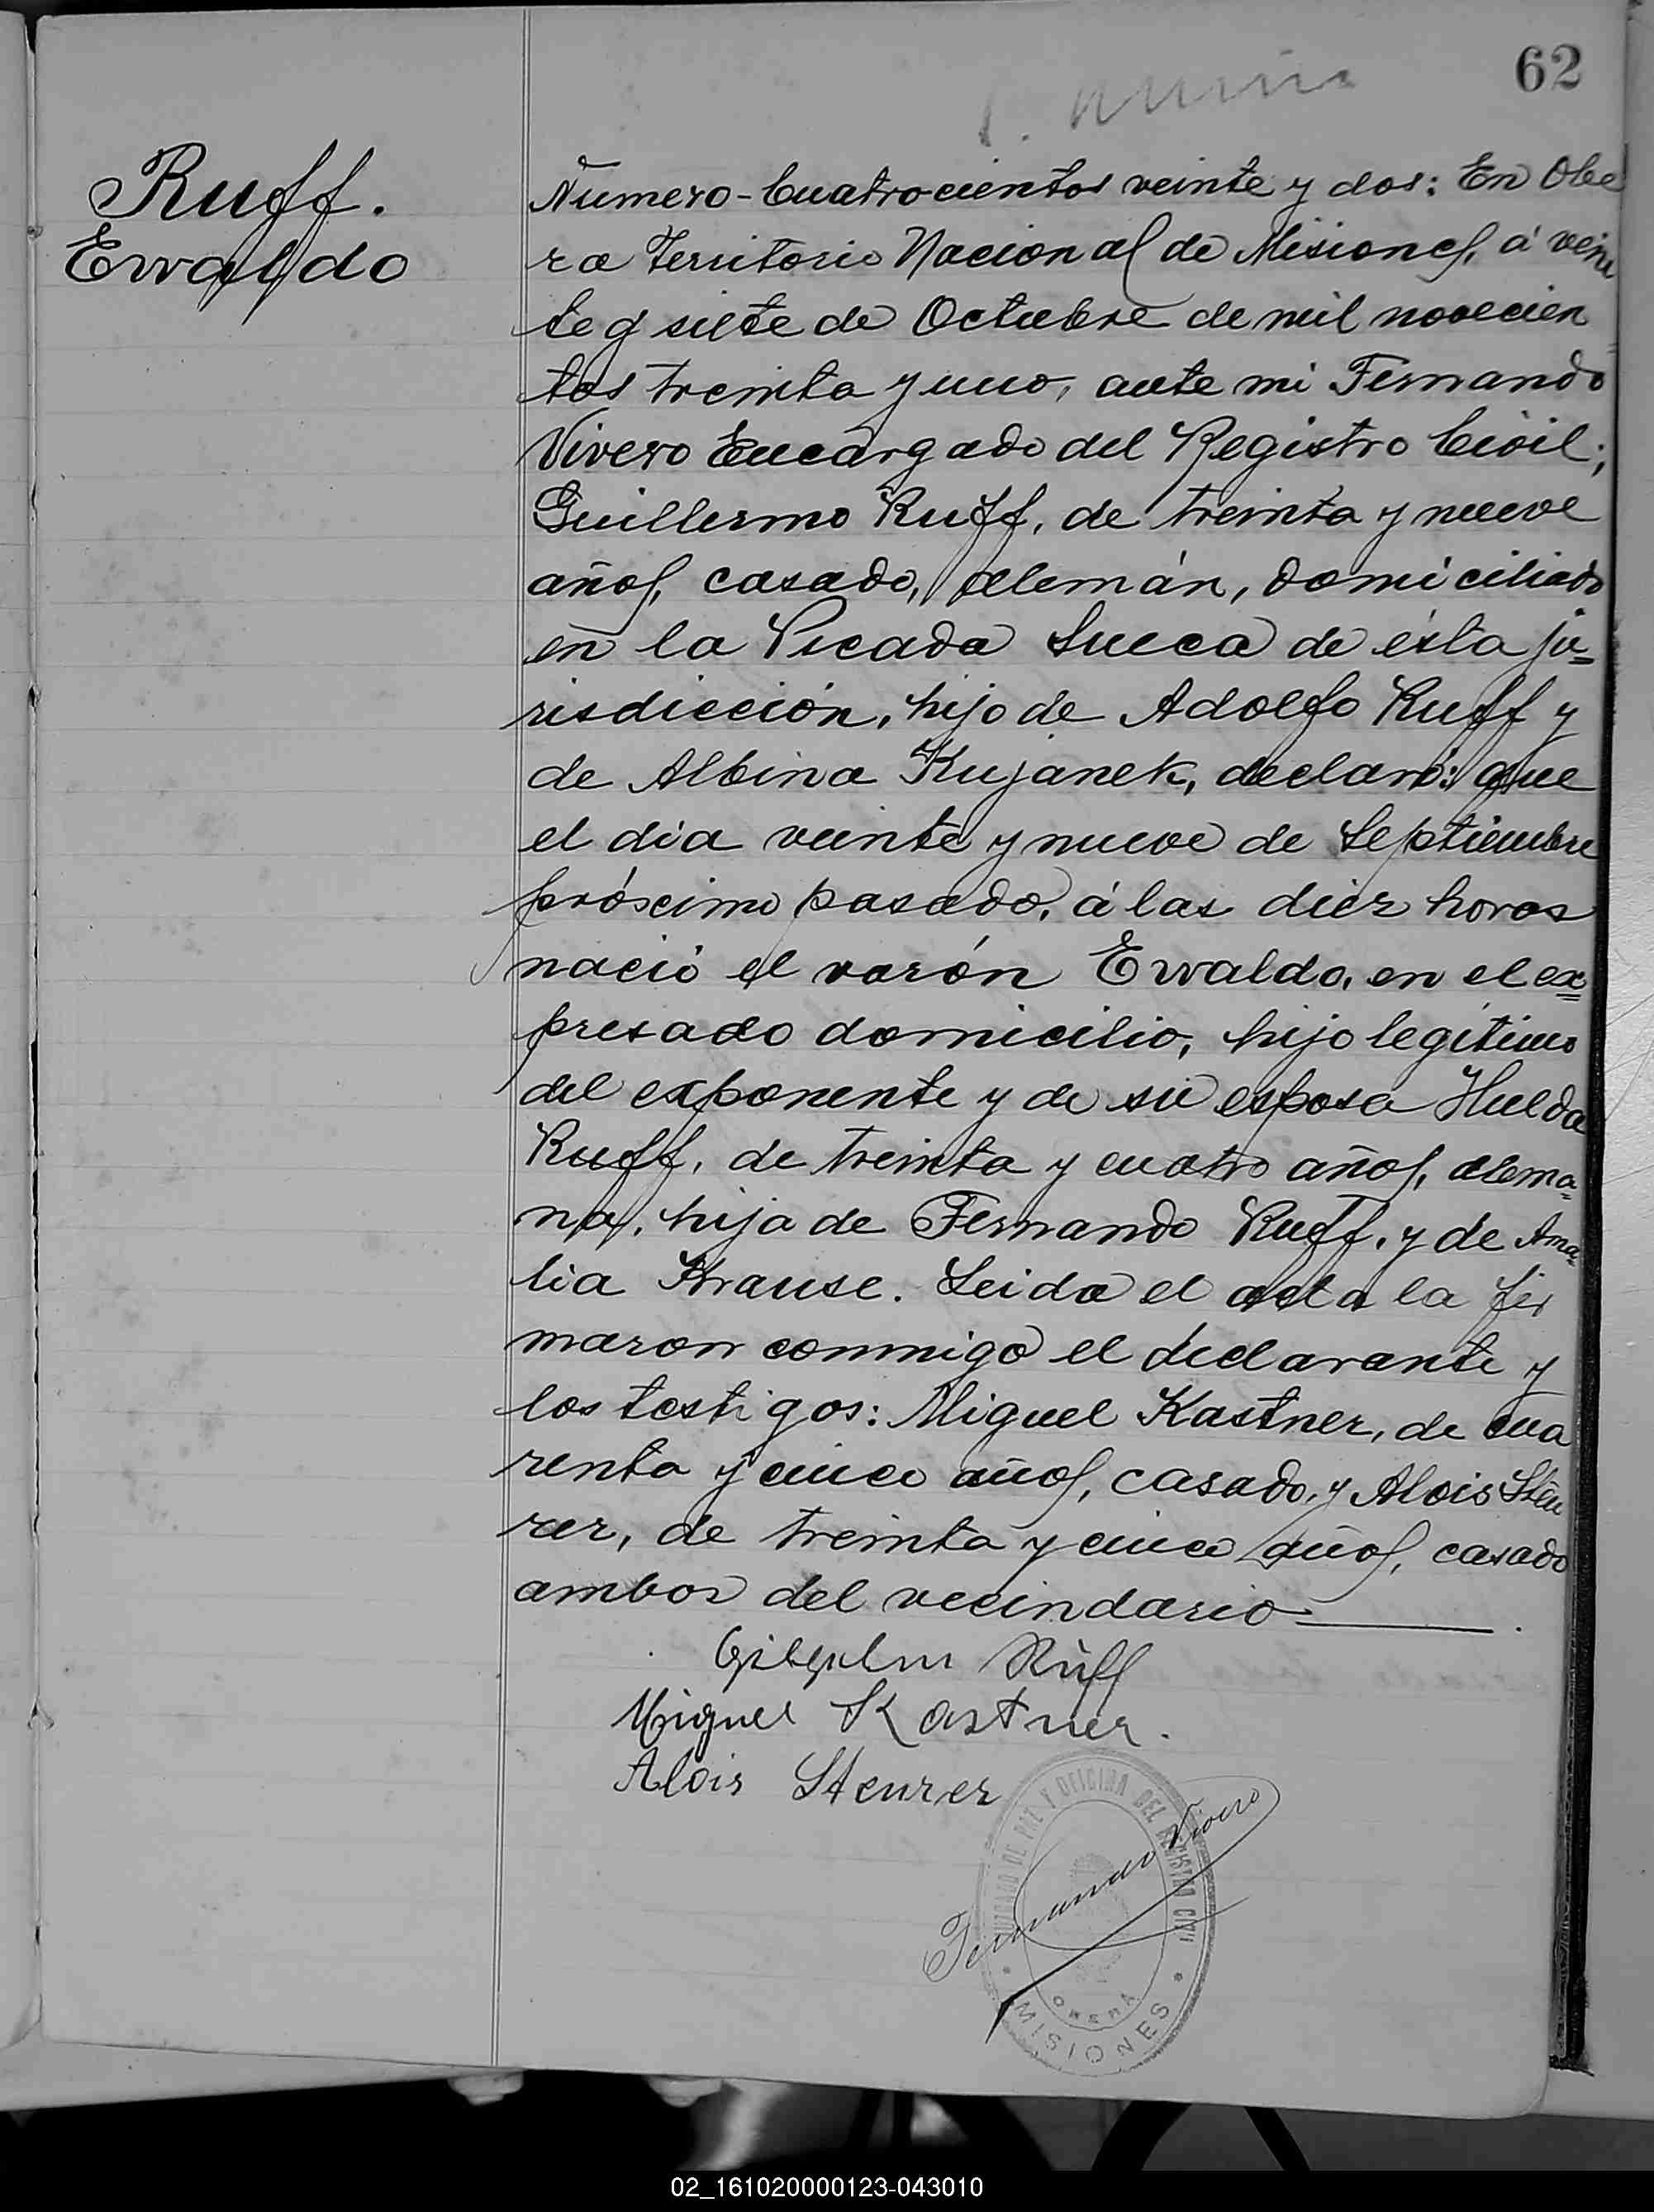 62
Ruff.
Ewaldo
Número-Cuatrocientos veinte y dos: En Obe
ra Territorio Nacional de Misiones, á vein
te y siete de Octubre de mil novecien
tos treinta y uno, ante mi Fernando
Vivero Encargado del Registro Civil;
Guillermo Ruff, de treinta y nueve
años, casado, alemán, domiciliado
en la Picada Sueca de ésta ju=
risdicción, hijo de Adolfo Ruff y
de Albina Kujanek, declaró: que
el dia veinte y nueve de Septiembre
próximo pasado, á las diez horas
nació el varón Ewaldo, en el ex=
presado domicilio, hijo legítimo
del exponente y de su esposa Hulda
Ruff, de treinta y cuatro años, alema=
na, hija de Fernando Ruff, y de Ama=
lia Krause. Leida el acta la fir
maron conmigo el declarante y
los testigos: Miguel Kastner, de cua
renta y cinco años, casado, y Alois Steu
rer, de treinta y cinco años, casado
ambos del vecindario.
Ruff
Miguel Kastner.
Alois Steurer
Fernando Vivero
JUZGADO DE PAZ Y OFICINA DEL REGISTRO CIVIL
MISIONES
02_161020000123-043010